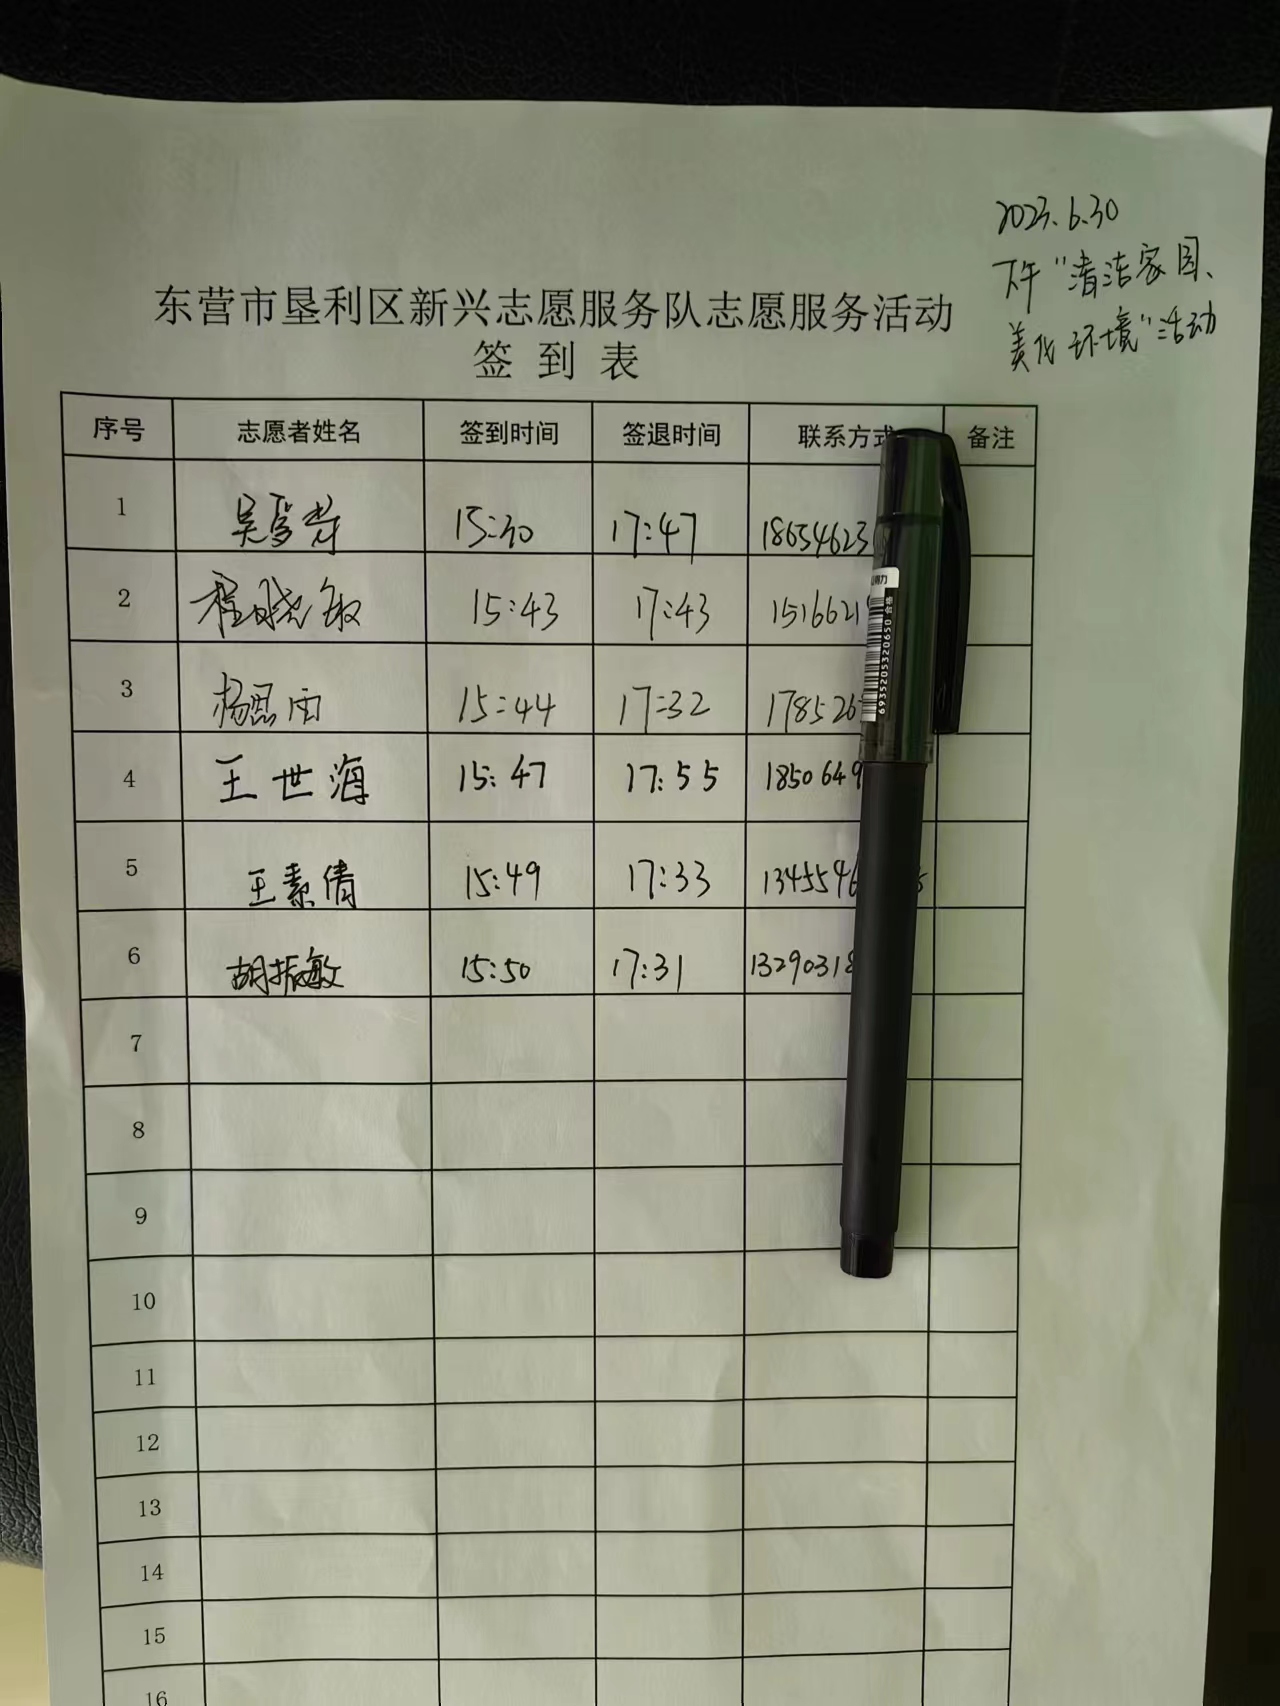 2023.6.30
下午“清洁家园、
美化环境”活动
东营市垦利区新兴志愿服务队志愿服务活动
签 到 表
序号 志愿者姓名 签到时间 签退时间 联系方式 备注
1 吴爱芳 15:30 17:47 18654623
2 程晓敏 15:43 17:43 1516621
3 杨思雨 15:44 17:32 178526
4 王世海 15:47 17:55 1850649
5 王素倩 15:49 17:33 1345546
6 胡振敏 15:50 17:31 13290318
7
8
9
10
11
12
13
14
15
16
6935205320650 合格